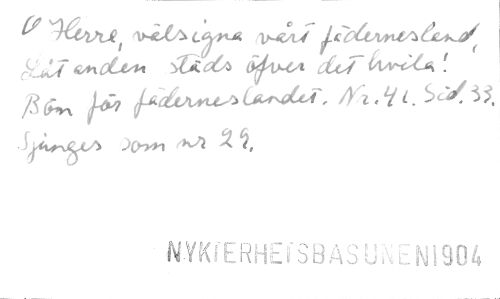 O Herre, välsigna vårt fädernesland,
Låt anden städs öfver det hvila!
Bön för fäderneslandet. Nr. 41. Sid. 33.
Sjunges som nr 29.
NYKTERHETSBASUNEN 1904